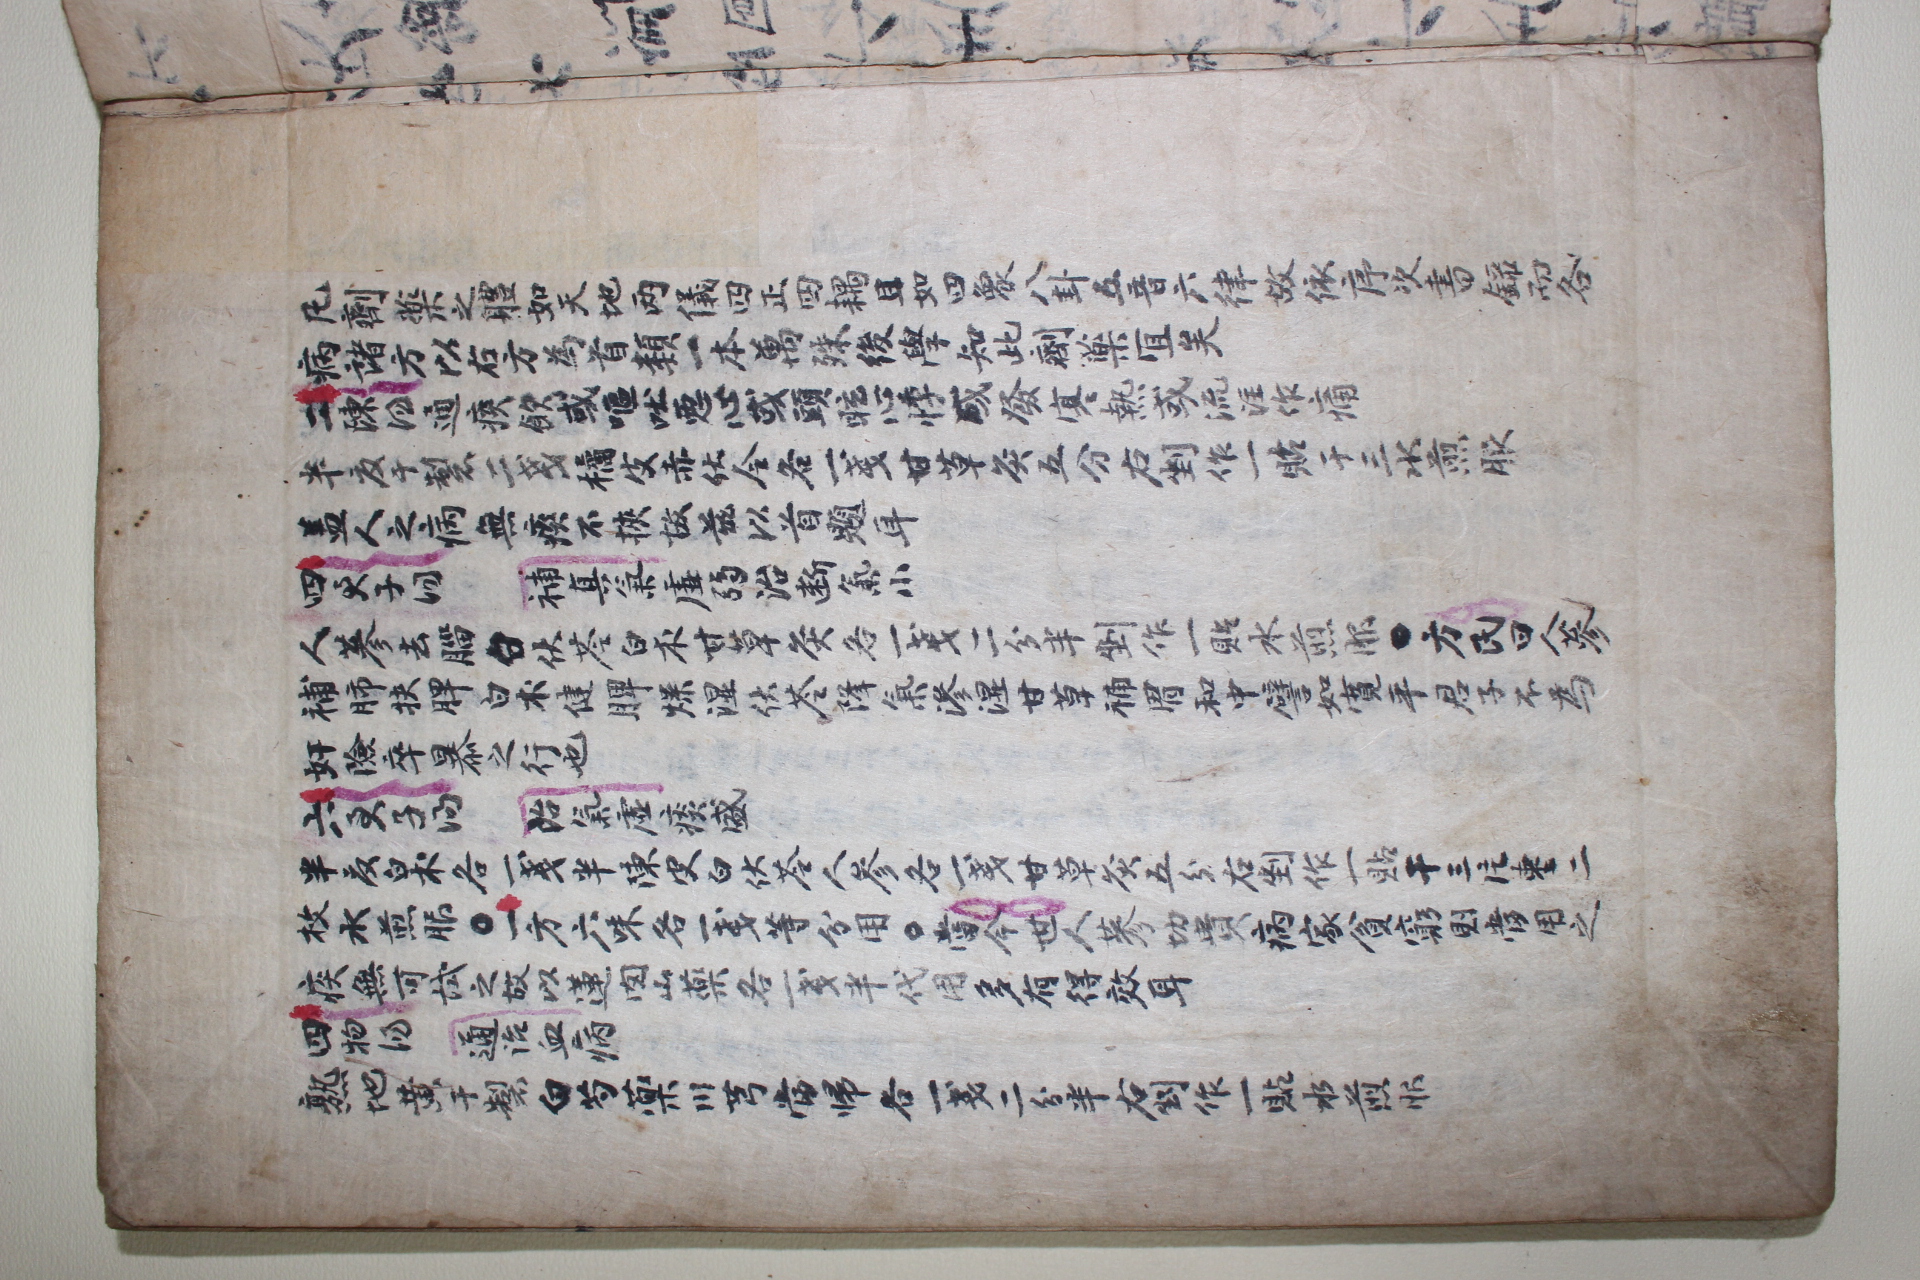 凡劑藥之體如天地兩儀四正四耦且如四象八卦五音六律故依序次書録而各
病諸方以右方為首類一本萬殊後學知此劑藥宜矣
二陳湯通痰飮或嘔吐惡心或頭眩心悸或發寒熱或流注作痛
半夏干製二戔橘皮赤伏令各一戔甘草灸五分右剉作一貼干三水煎服
盖人之病無痰不挾故玆以首題耳
四君子湯 補眞氣虛弱治断氣小
人蔘去腦白伏苓白朮甘草灸各一戔二分半剉作一貼水煎服●方氏曰人蔘
補肺扶脾白朮健脾燥湿伏苓降氣滲湿甘草補胃和中譬如寛平君子不為
奸險卒暴之行也
六君子湯 治氣虛痰盛
半夏白朮各一戔半陳皮白伏苓人參各一戔甘草灸五分右剉作一貼干三片棗二
枚水煎服○一方六味各一戔等分用○當今世人蔘切貴病家貧窮則常用之
疾無可試之故以蓮肉山藥各一戔半代用多有得效耳
四物湯 通治血病
熟地黃干製白芍藥川芎當帰各一戔二分半右剉作一貼水煎服